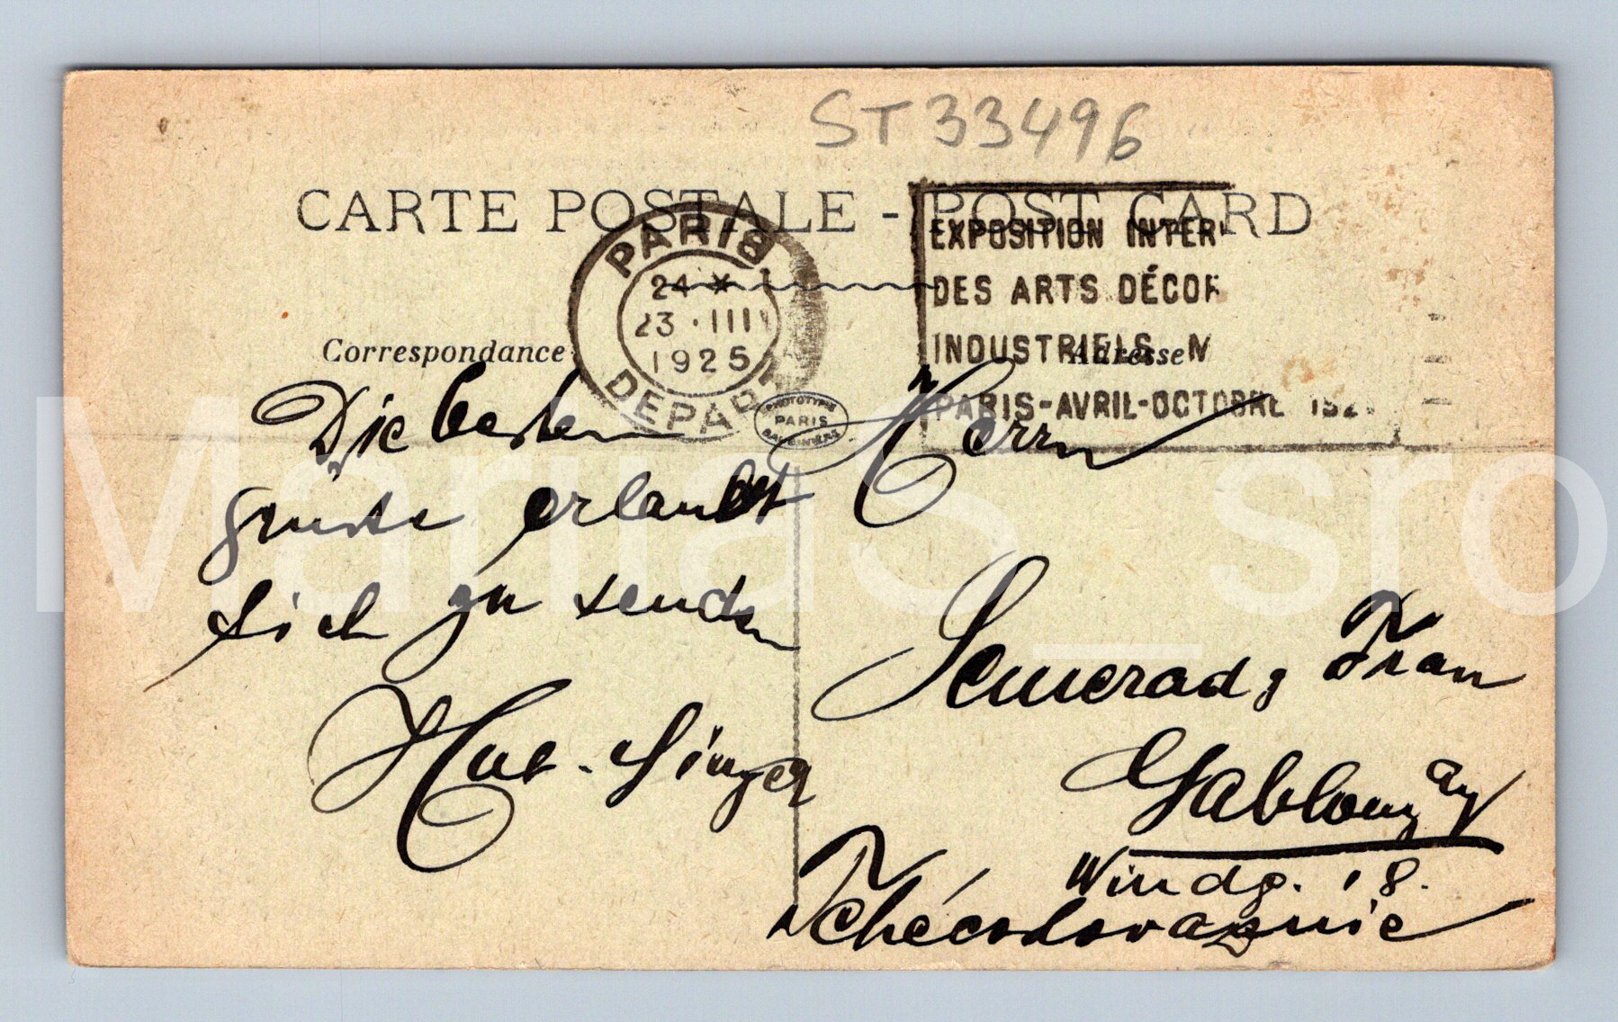 ST 33496
CARTE POSTALE - POST CARD
PARIS 8
24 *
23 · III
1925
DEPART
EXPOSITION INTER
DES ARTS DÉCOR
INDUSTRIELS M
PARIS-AVRIL-OCTOBRE 192
Correspondance
Adresse
PHOTOTYPIE
PARIS
Die besten
grüsse erlaubt
sich zu senden
Singer
Herrn
Semerad, Fran
Gablonz a/
Windg. 18.
Tchécoslovaquie